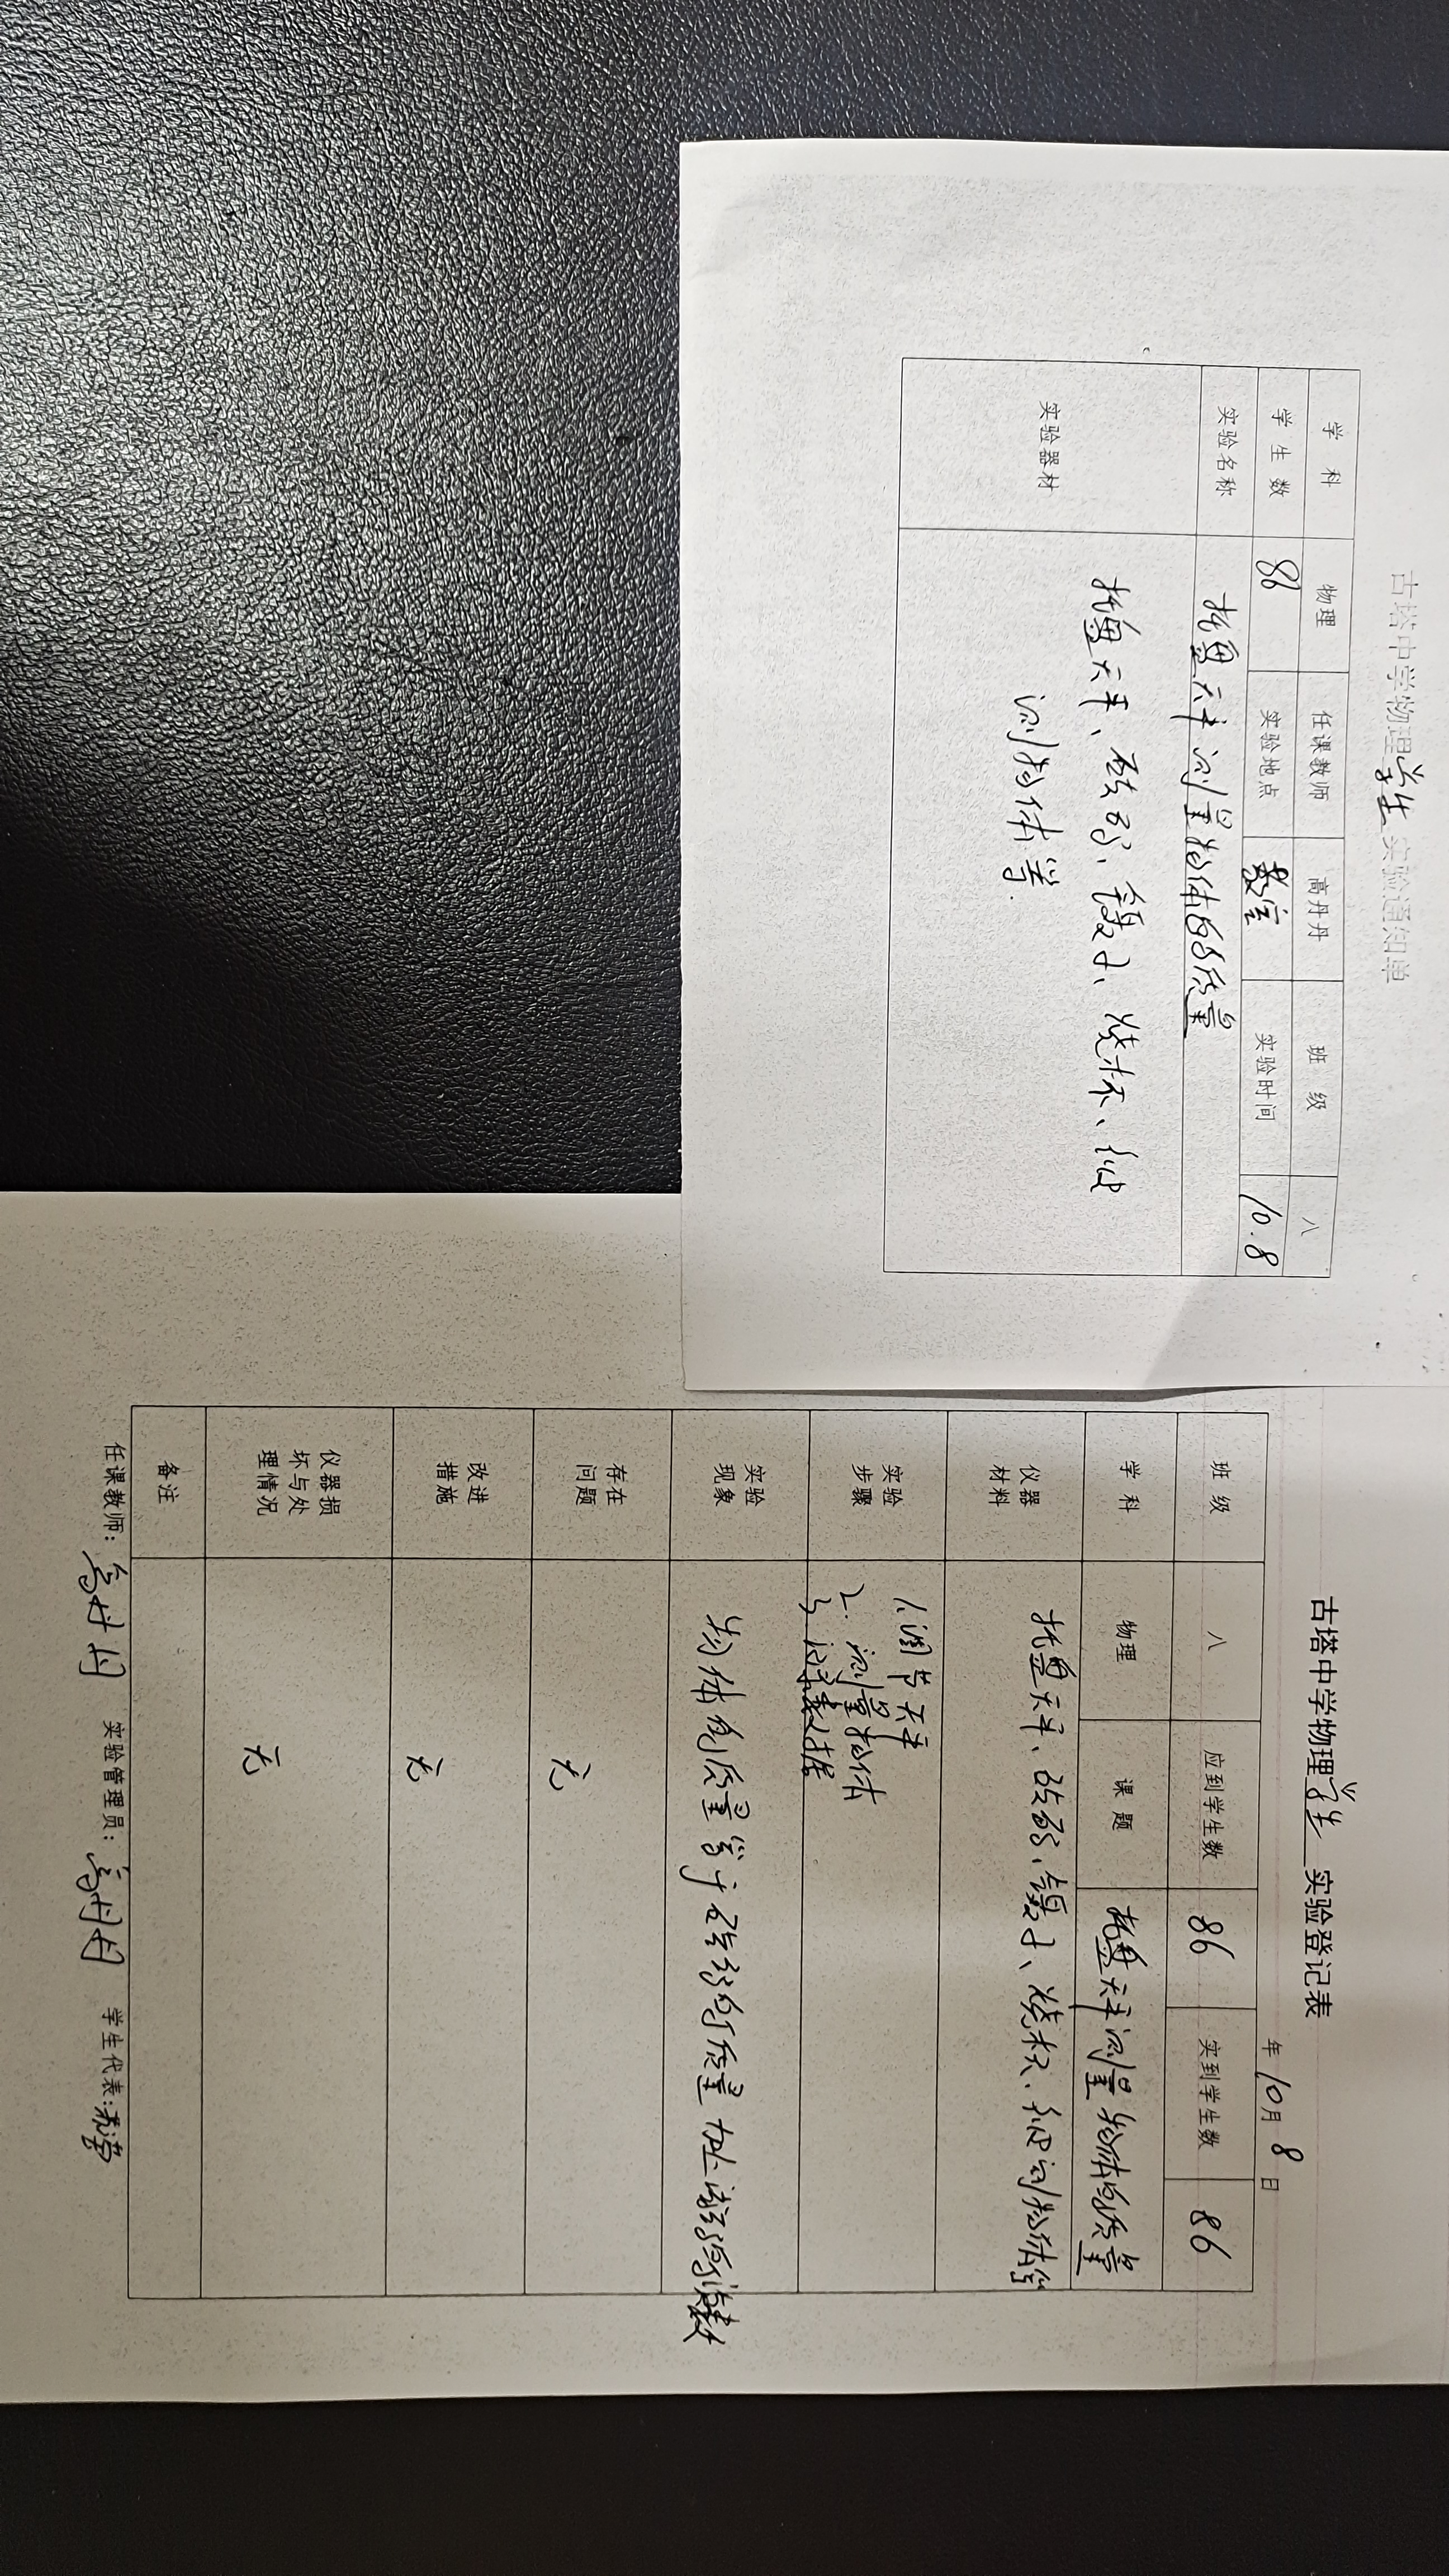 古塔中学物理学生实验通知单
学 科 物理 任课教师 高丹丹 班 级 八
学 生 数 86 实验地点 教室 实验时间 10.8
实验名称 托盘天平测量物体的质量
实验器材 托盘天平、砝码、镊子、烧杯、
测物体等.
古塔中学物理学生实验登记表
年10月8日
班 级 八 应到学生数 86 实到学生数 86
学 科 物理 课 题 托盘天平测量物体的质量
仪器
材料 托盘天平、砝码、镊子、烧杯、测物体等
实验
步骤 1.调节天平
2.测量物体
3.记录数据
实验
现象 物体的质量等于砝码的质量加上游码的读数
存在
问题 无
改进
措施 无
仪器损
坏与处
理情况 无
备注
任课教师：高丹丹 实验管理员：高丹丹 学生代表：